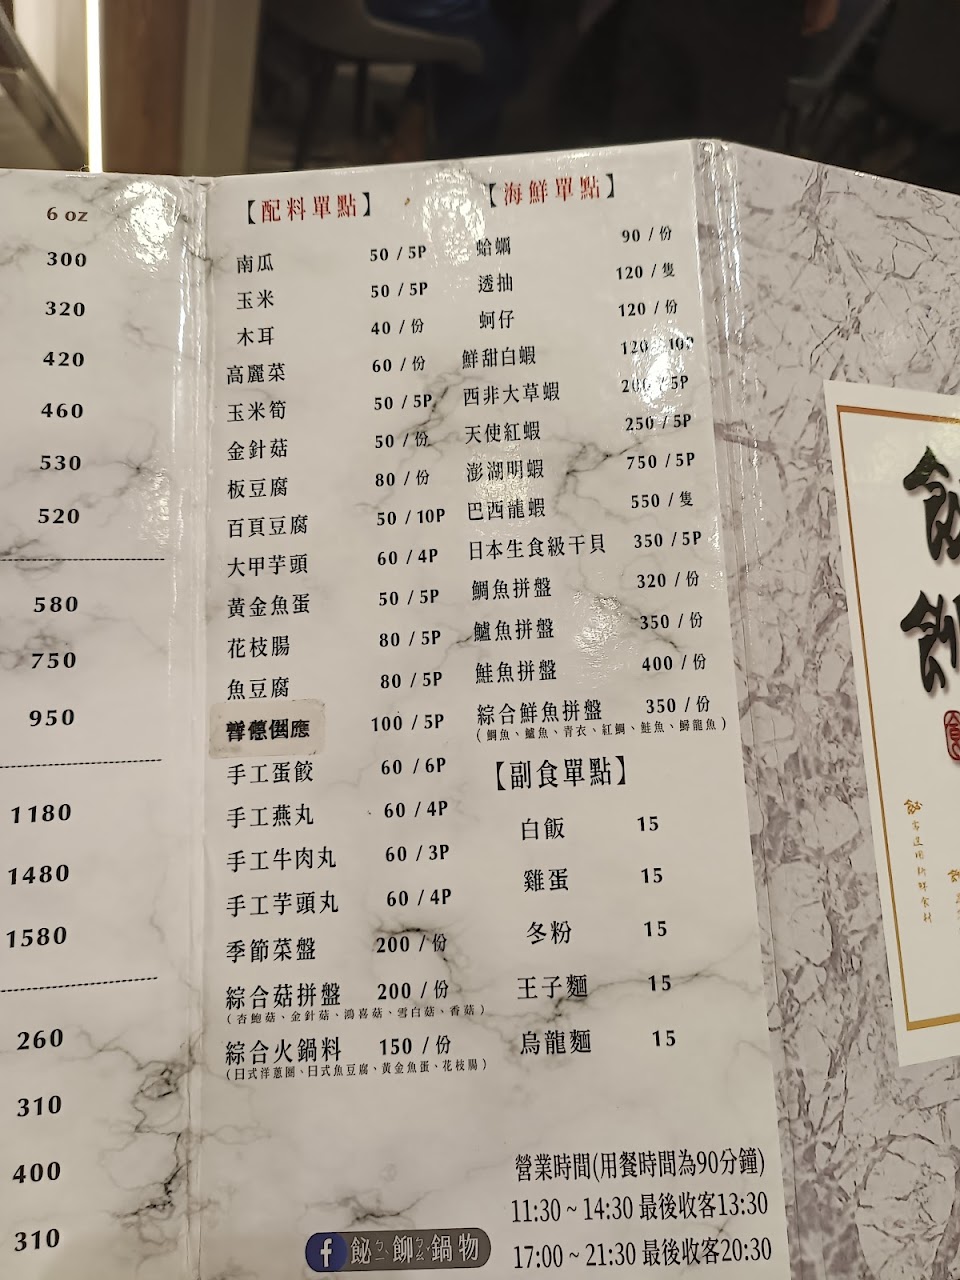 6 oz
300
320
420
460
530
520
580
750
950
1180
1480
1580
260
310
400
310
【配料單點】
南瓜 50 / 5P
玉米 50 / 5P
木耳 40 / 份
高麗菜 60 / 份
玉米筍 50 / 5P
金針菇 50 / 份
板豆腐 80 / 份
百頁豆腐 50 / 10P
大甲芋頭 60 / 4P
黃金魚蛋 50 / 5P
花枝腸 80 / 5P
魚豆腐 80 / 5P
100 / 5P
手工蛋餃 60 / 6P
手工燕丸 60 / 4P
手工牛肉丸 60 / 3P
手工芋頭丸 60 / 4P
季節菜盤 200 / 份
綜合菇拼盤 200 / 份
(杏鮑菇、金針菇、鴻喜菇、雪白菇、香菇)
綜合火鍋料 150 / 份
(日式洋蔥圈、日式魚豆腐、黃金魚蛋、花枝腸)
【海鮮單點】
蛤蠣 90 / 份
透抽 120 / 隻
蚵仔 120 / 份
鮮甜白蝦 120 / 10P
西非大草蝦 200 / 5P
天使紅蝦 250 / 5P
澎湖明蝦 750 / 5P
巴西龍蝦 550 / 隻
日本生食級干貝 350 / 5P
鯛魚拼盤 320 / 份
鱸魚拼盤 350 / 份
鮭魚拼盤 400 / 份
綜合鮮魚拼盤 350 / 份
(鯛魚、鱸魚、青衣、紅鯛、鮭魚、鱘龍魚)
【副食單點】
白飯 15
雞蛋 15
冬粉 15
王子麵 15
烏龍麵 15
營業時間(用餐時間為90分鐘)
11:30 ~ 14:30 最後收客13:30
17:00 ~ 21:30 最後收客20:30
f 飶ㄅㄧˋ 鉚ㄅㄠˇ 鍋物